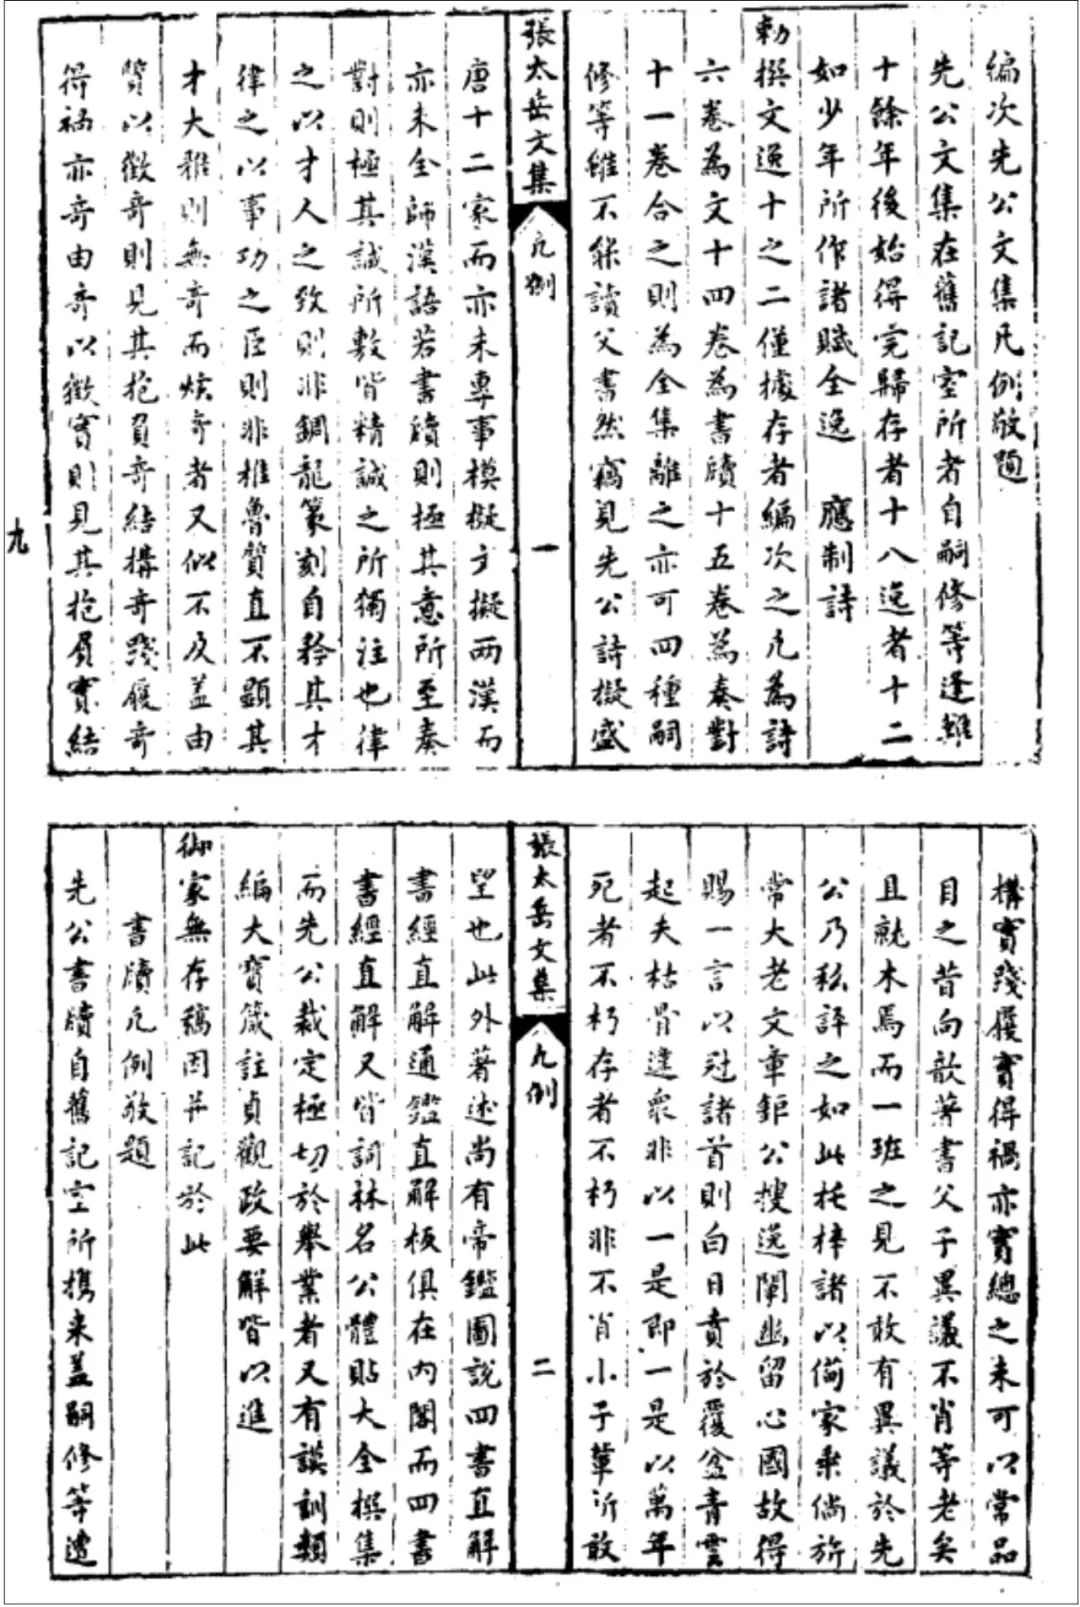 編次先公文集凡例敬題
先公文集在舊記室所者自嗣修等逢難
十餘年後始得完歸存者十八逸者十二
如少年所作諸賦全逸　應制詩
勅撰文逸十之二僅據存者編次之凡為詩
六卷為文十四卷為書牘十五卷為奏對
十一卷合之則為全集離之亦可四種嗣
修等雖不能讀父書然竊見先公詩擬盛
張太岳文集
凡例
一
唐十二家而亦未專事模擬文擬兩漢而
亦未全師漢語若書牘則極其意所至奏
對則極其誠所敷皆精誠之所獨注也律
之以才人之致則非鋼龍篆刻自矜其才
律之以事功之臣則非椎魯質直不顯其
才大雅則無奇而炫奇者又似不及蓋由
質以徵奇則見其抱負奇結構奇踐履奇
得禍亦奇由奇以徵實則見其抱負實結
九
構實踐履實得禍亦實總之未可以常品
目之昔向歆著書父子異議不肖等老矣
且就木焉而一班之見不敢有異議於先
公乃私評之如此托梓諸以備家乘倘旂
常大老文章鉅公搜逸闡幽留心國故得
賜一言以冠諸首則白日賁於覆盆青雲
起夫枯骨違眾非以一是即一是以萬年
死者不朽存者不朽非不肖小子輩沂敢
張太岳文集
凡例
二
望也此外著述尚有帝鑑圖說四書直解
書經直解通鑑直解板俱在內閣而四書
書經直解又皆詞林名公體貼大全撰集
而先公裁定極切於舉業者又有謨訓類
編大寶箴註貞觀政要解皆以進
御家無存稿因并記於此
書牘凡例敬題
先公書牘自舊記室所携来蓋嗣修等遭